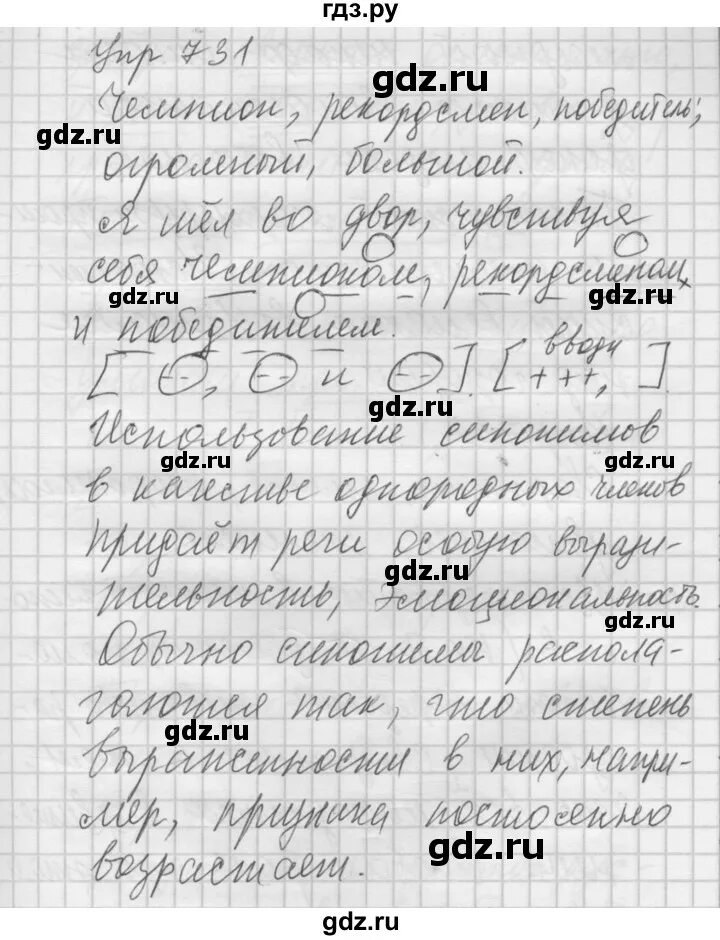 гдз.ру
Упр 731
gdz.ru
Чемпион, рекордсмен, победитель;
gdz.ru
огромный, большой.
gdz.ru
Я шёл во двор, чувствуя
себя чемпионом, рекордсменом
gdz.ru
gdz.ru
и победителем.
вводн
[ –, – и – ]. [ +++, ].
gdz.ru
Использование синонимов
gdz.ru
gdz.ru
в качестве однородных членов
придаёт речи особую вырази-
gdz.ru
тельность, эмоциональность.
gdz.ru
Обычно синонимы распола-
гаются так, что степень
gdz.ru
выраженности в них, напри-
мер, признака постепенно
gdz.ru
возрастает.
gdz.ru